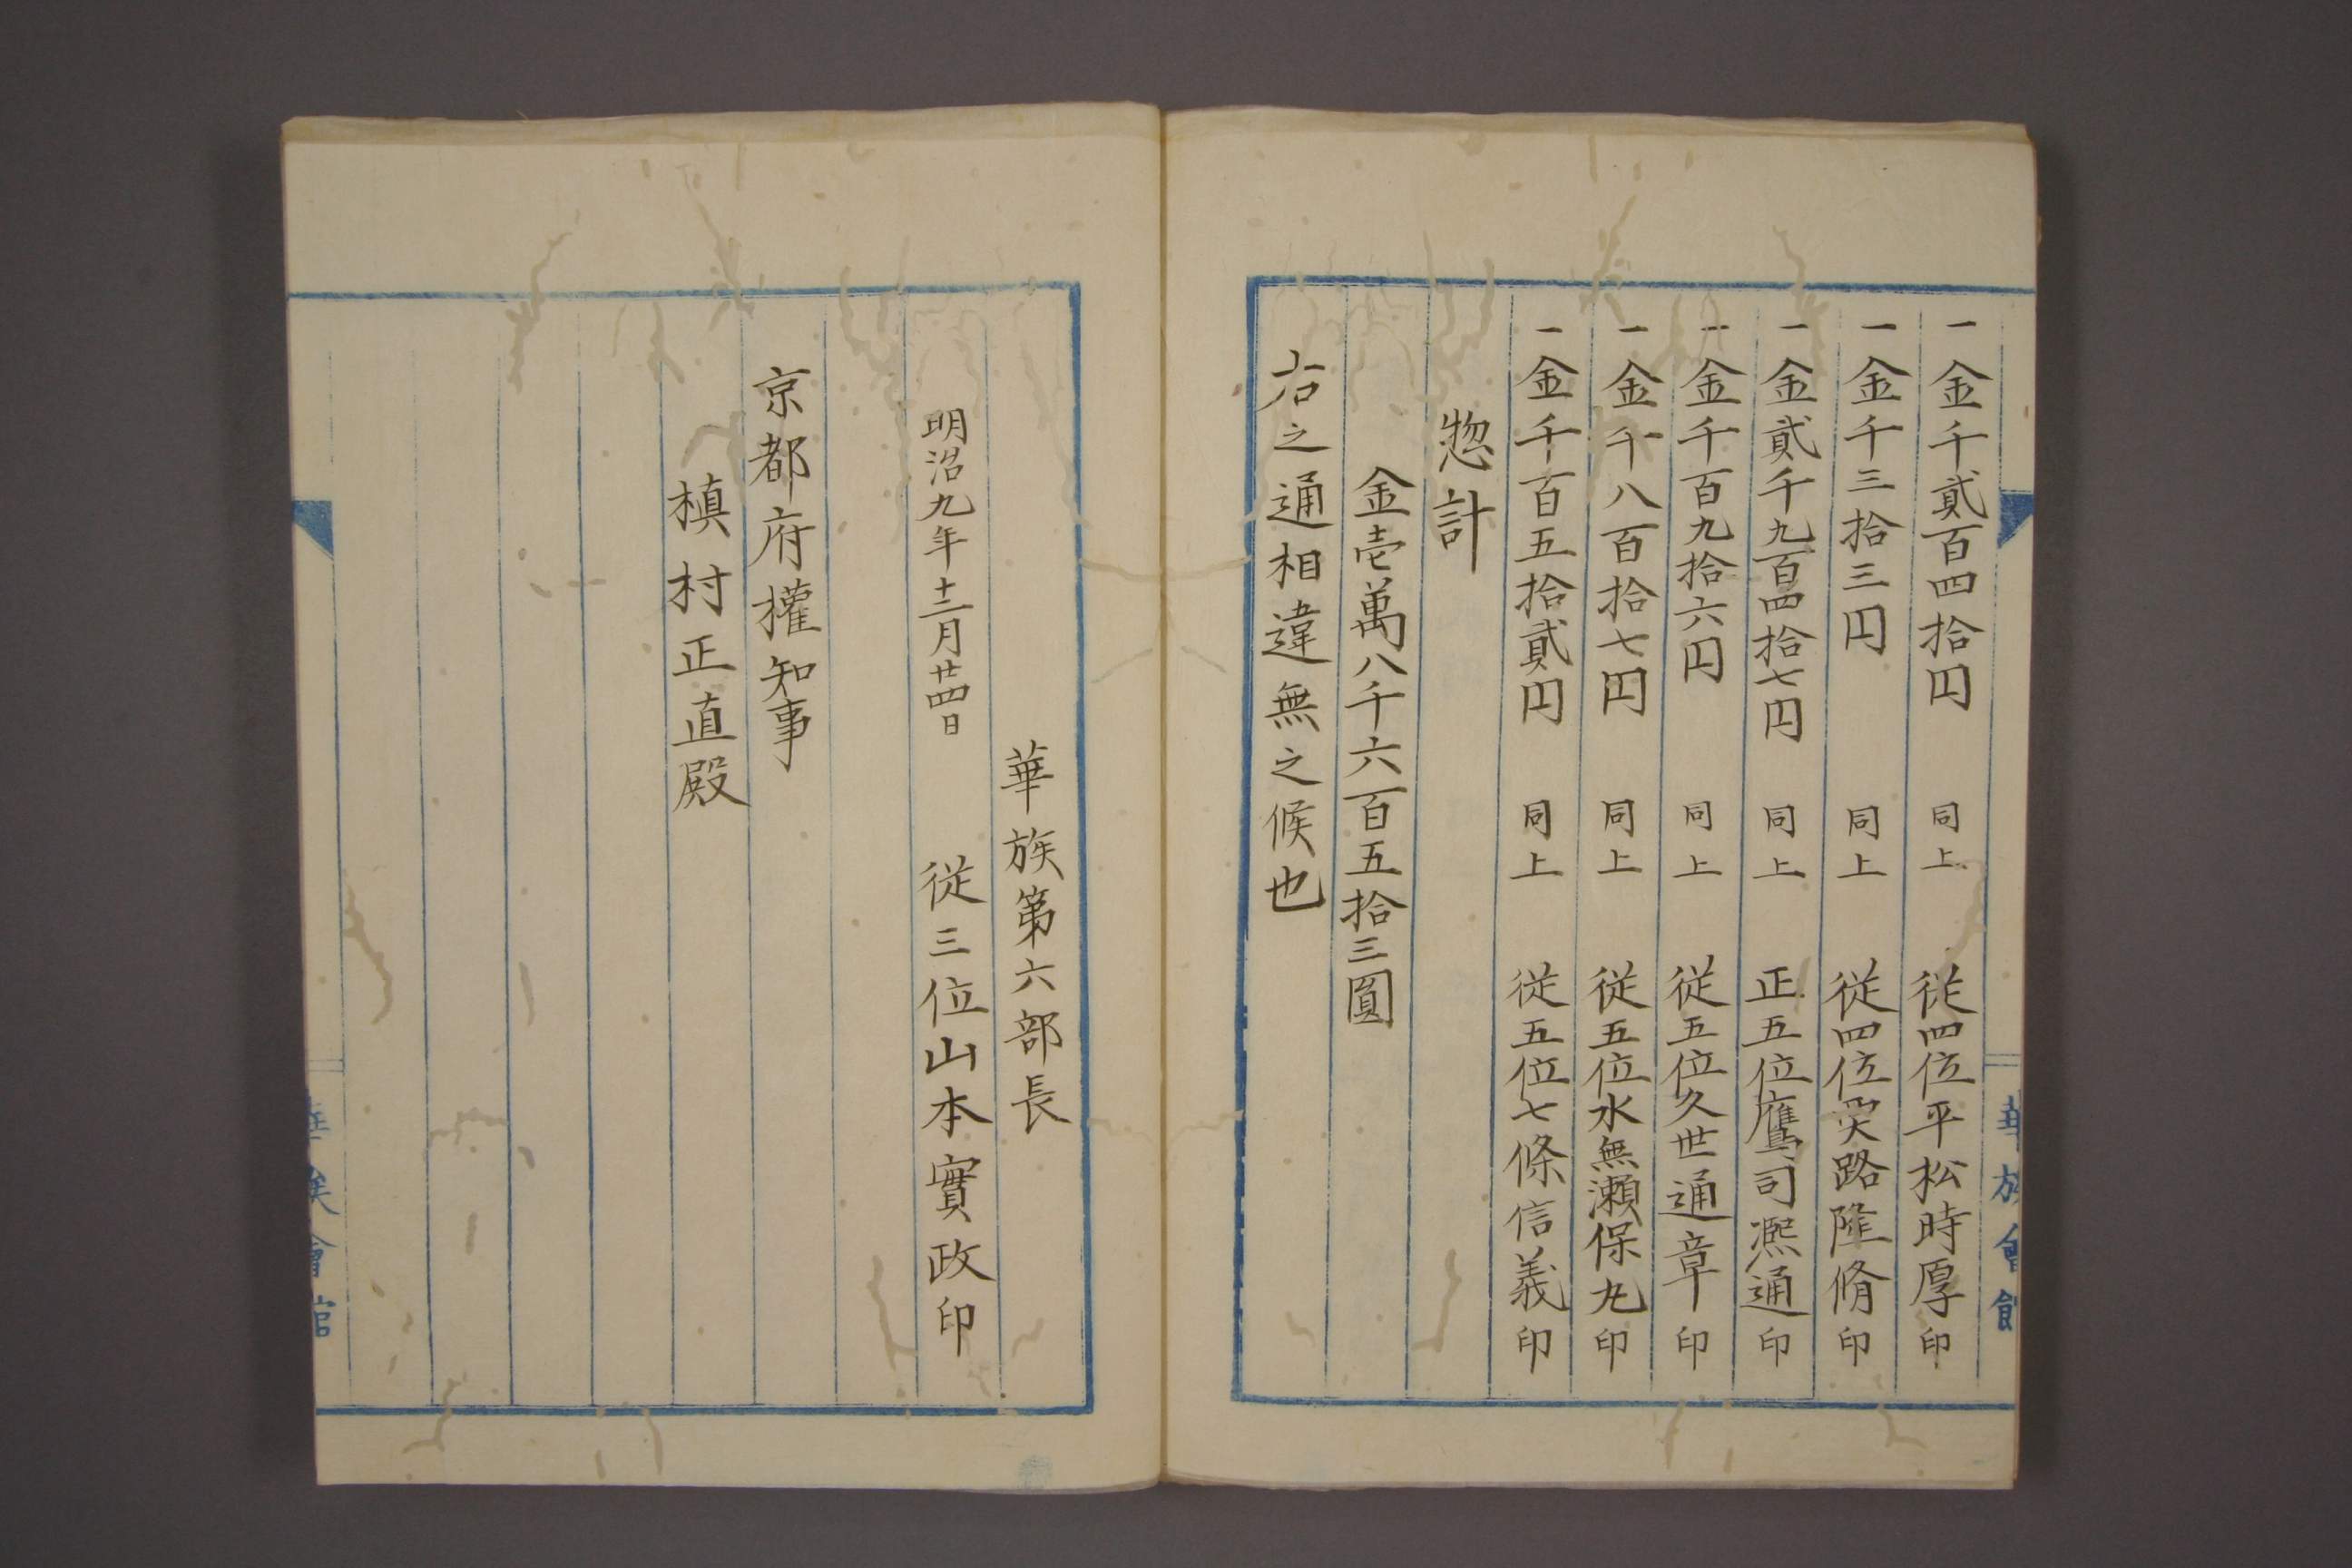 一金千貳百四拾円 同上 従四位平松時厚印
一金千三拾三円 同上 従四位西大路隆脩印
一金貳千九百四拾七円 同上 正五位鷹司凞通印
一金千百九拾六円 同上 従五位久世通章印
一金千八百拾七円 同上 従五位水無瀬保丸印
一金千百五拾貳円 同上 従五位七條信義印
惣計
金壱萬八千六百五拾三圓
右之通相違無之候也
華族會館
華族第六部長
明治九年十二月廿四日 従三位山本實政印
京都府權知事
槙村正直殿
華族會館